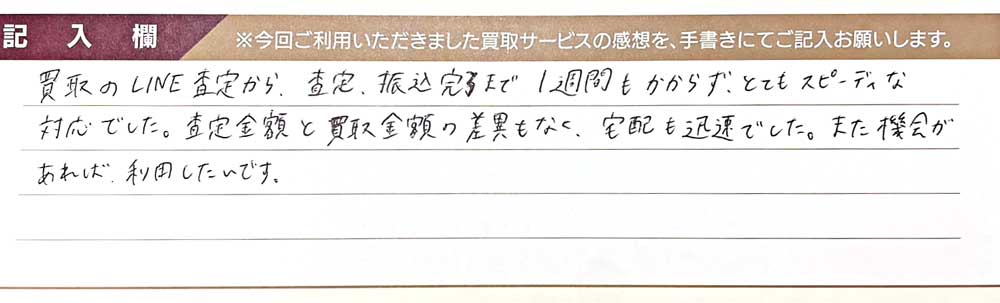 記入欄
※今回ご利用いただきました買取サービスの感想を、手書きにてご記入お願いします。
買取のLINE査定から、査定、振込完了まで1週間もかからず、とてもスピーディな
対応でした。査定金額と買取金額の差異もなく、宅配も迅速でした。また機会が
あれば、利用したいです。